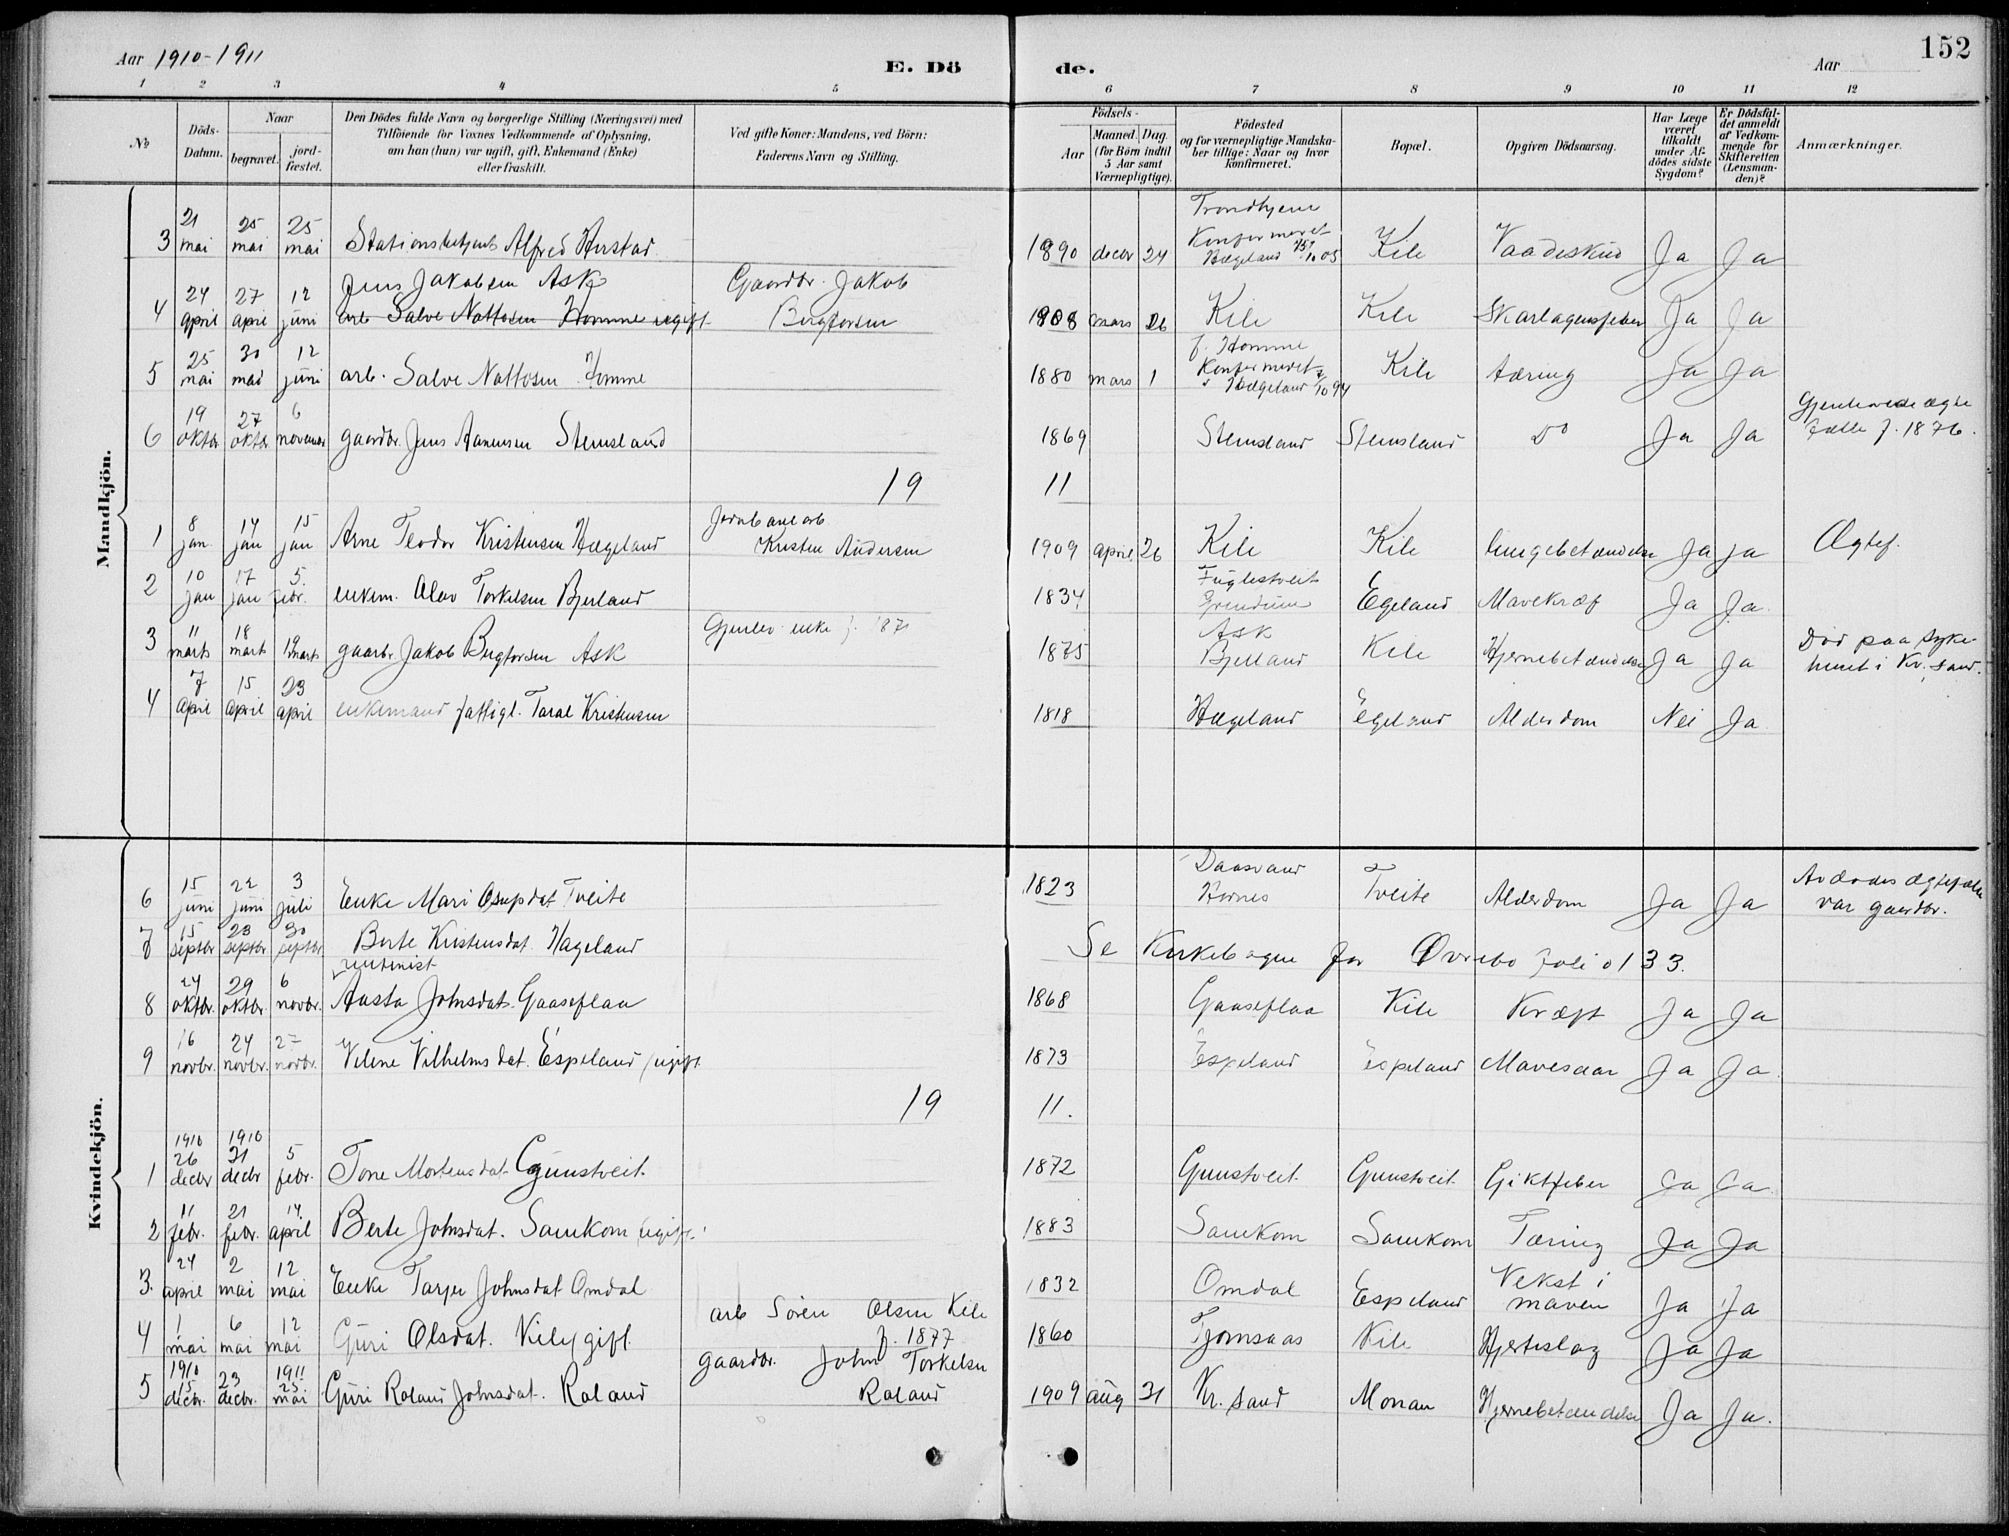 Aar 1910-1911
E. Dö
de.
Aar
152
1 2 3 4 5 6 7 8 9 10 11 12
No
Döds-Datum.
Naar
begravet.
jord-fæstet.
Den Dödes fulde Navn og borgerlige Stilling (Næringsvei) med
Tilföiende for Voxnes Vedkommende af Oplysning,
om han (hun) var ugift, gift, Enkemand (Enke)
eller fraskilt.
Ved gifte Koner: Mandens, ved Börn:
Faderens Navn og Stilling.
Födsels-
Aar
Maaned. Dag.
(for Börn indtil
5 Aar samt
Værnepligtige).
Födested
og for værnepligtige Mandska-
ber tillige: Naar og hvor
konfirmeret.
Bopæl.
Opgiven Dödsaarsag.
Har Læge
været
tilkaldt
under Af-
dödes sidste
Sygdom?
Er Dödsfal-
det anmeldt
af Vedkom-
mende for
Skifteretten
(Lensman-
den)?
Anmærkninger.
Mandkjön.
3 21 mai 25 mai 25 mai Stationsbetjent Alfred 1890 decbr 24 Trondhjem Konfirmeret Hægeland 1/10 05 Kile Vaadeskud Ja Ja
4 24 april 27 april 12 juni Jens Jakobsen Ask Gaardbr. Jakob Bergtorsen 1908 mars 26 Kile Kile Skarlagensfeber Ja Ja
arb Salve Nottosen Homme ugift
5 25 mai 30 mai 12 juni arb. Salve Nottosen Homme 1880 mars 1 f. Homme Konfirmeret i Hægeland 7/10 94 Kile tæring Ja Ja
6 19 oktbr 27 oktbr 6 novembr gaardbr. Jens Aanensen Stemsland 1869 Stemsland Stemsland Do Ja Ja Gjenlevende ægtefælle f. 1876.
19 11
1 8 jan. 14 jan 15 jan Arne Teodor Kristensen Hægeland Jernbanearb Kristen Andersen 1909 april 26 Kile Kile lungebetændelse Ja ja Ægtef.
2 10 jan 17 jan 5. febr. enkem. Olav Torkelsen Bjerland 1834 Fuglestveit Egeland Mavekræf Ja Ja.
3 11 marts 18 marts 19 marts gaarbr. Jakob Bergtorsen Ask Gjenlev. enke f. 1871 1875 Ask Bjelland Kile Hjernebetændelse Ja Ja Död paa syke-huset i Kr. sand.
4 7 april 15 april 23 april enkemand fattigl. Taral Kristensen 1818 Hægeland Egeland Alderdom Nei Ja.
Kvindekjön.
6 15 juni 22 juni 3 juli Enke Mari Osupdat Tveite 1823 Daasvand Tveite Alderdom Ja Ja Avdødes ægtefælle var gaardbr.
7 15 septbr 23 septbr 30 septbr Berte Kristensdat. Hageland Se Kirkebogen for Øvrebo folio 133.
8 24 oktbr. 29 oktbr. 6 novbr. Aasta Johnsdat. Gaaseflaa 1868 Gaaseflaa Kile Kræft Ja Ja
9 16 novbr. 24 novbr. 27 novbr. Vilene Vilhelmsdat. Espeland ugift. 1873 Espeland Espeland Mavesaar Ja Ja.
19 11.
1 1910 26 decbr 1910 31 decbr 5 febr. Tone Mortensdat. Gunstveit. 1872 Gunstveit. Gunstveit. Giktfeber Ja Ja
2 11 febr. 21 febr. 14 april Berte Johnsdat. Samkom ugift. 1883 Samkom Samkom Tæring Ja Ja
3. 24 april 2 mai 12 mai Enke Tarjer Johnsdat Omdal 1832 Omdal Espeland Vekst i maven Ja Ja
4 1 mai 6 mai 12 mai Guri Olsdat. Kile gift. arb Sören Olsen Kile f. 1877 1860 Tjomsaas Kile Hjerteslag Ja Ja
5 1910 15 decbr. 23 decbr. 1911 25 mai Guri Roland Johnsdat. Roland gaardbr. John Torkelsen Roland 1909 aug 31 Kr. sand Monan Hjernebetændelse Ja Ja.